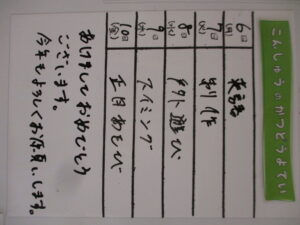 こんしゅうのかつどうよてい
6日(月)
7日(火) 制作
8日(水) 遊び
9日(木) スイミング
10日(金) 正月あそび
あけましておめでとう
ございます。
今年もよろしくお願いします。